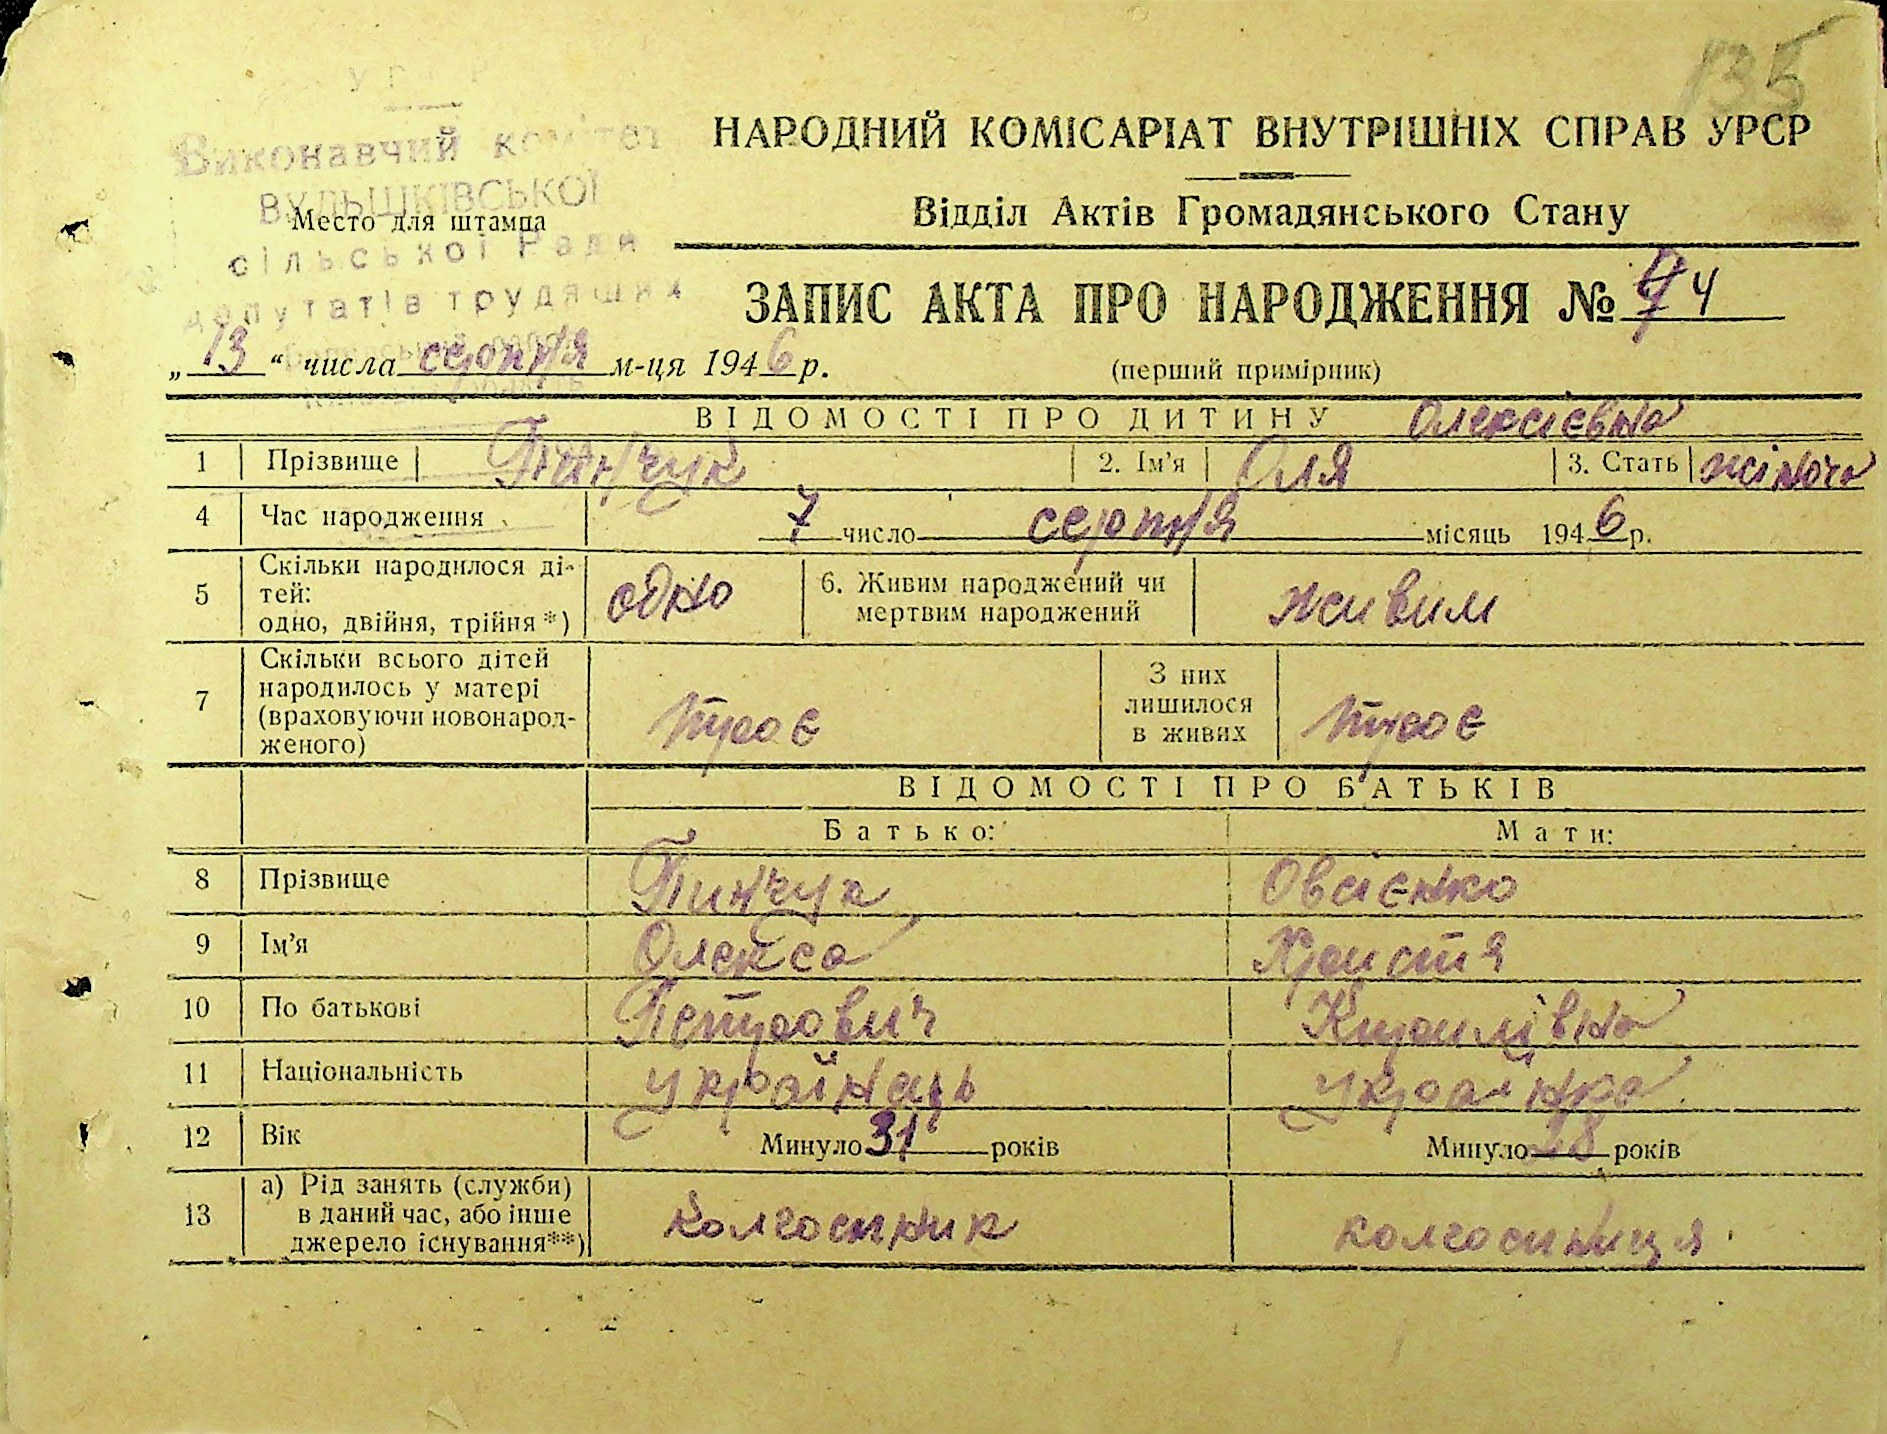 135
Виконавчий комітет
ВУЛЬШКІВСЬКОЇ
сільської Ради
депутатів трудящих
Место для штампа
НАРОДНИЙ КОМІСАРІАТ ВНУТРІШНІХ СПРАВ УРСР
Відділ Актів Громадянського Стану
ЗАПИС АКТА ПРО НАРОДЖЕННЯ № 74
„13“ числа серпня м-ця 1946 р.
(перший примірник)
ВІДОМОСТІ ПРО ДИТИНУ Олексієвна
1 Прізвище Пинчук 2. Ім'я Оля 3. Стать жіноча
4 Час народження 7 число серпня місяць 1946 р.
5 Скільки народилося ді-
тей:
одно, двійня, трійня*) одно 6. Живим народжений чи
мертвим народжений живим
7 Скільки всього дітей
народилось у матері
(враховуючи новонарод-
женого) троє З них
лишилося
в живих троє
ВІДОМОСТІ ПРО БАТЬКІВ
Батько: Мати:
8 Прізвище Пинчук Овсієнко
9 Ім'я Олекса Христя
10 По батькові Петрович Кирилівна
11 Національність українець українка
12 Вік Минуло 31 років Минуло 28 років
13 а) Рід занять (служби)
в даний час, або інше
джерело існування**) колгоспник колгоспниця